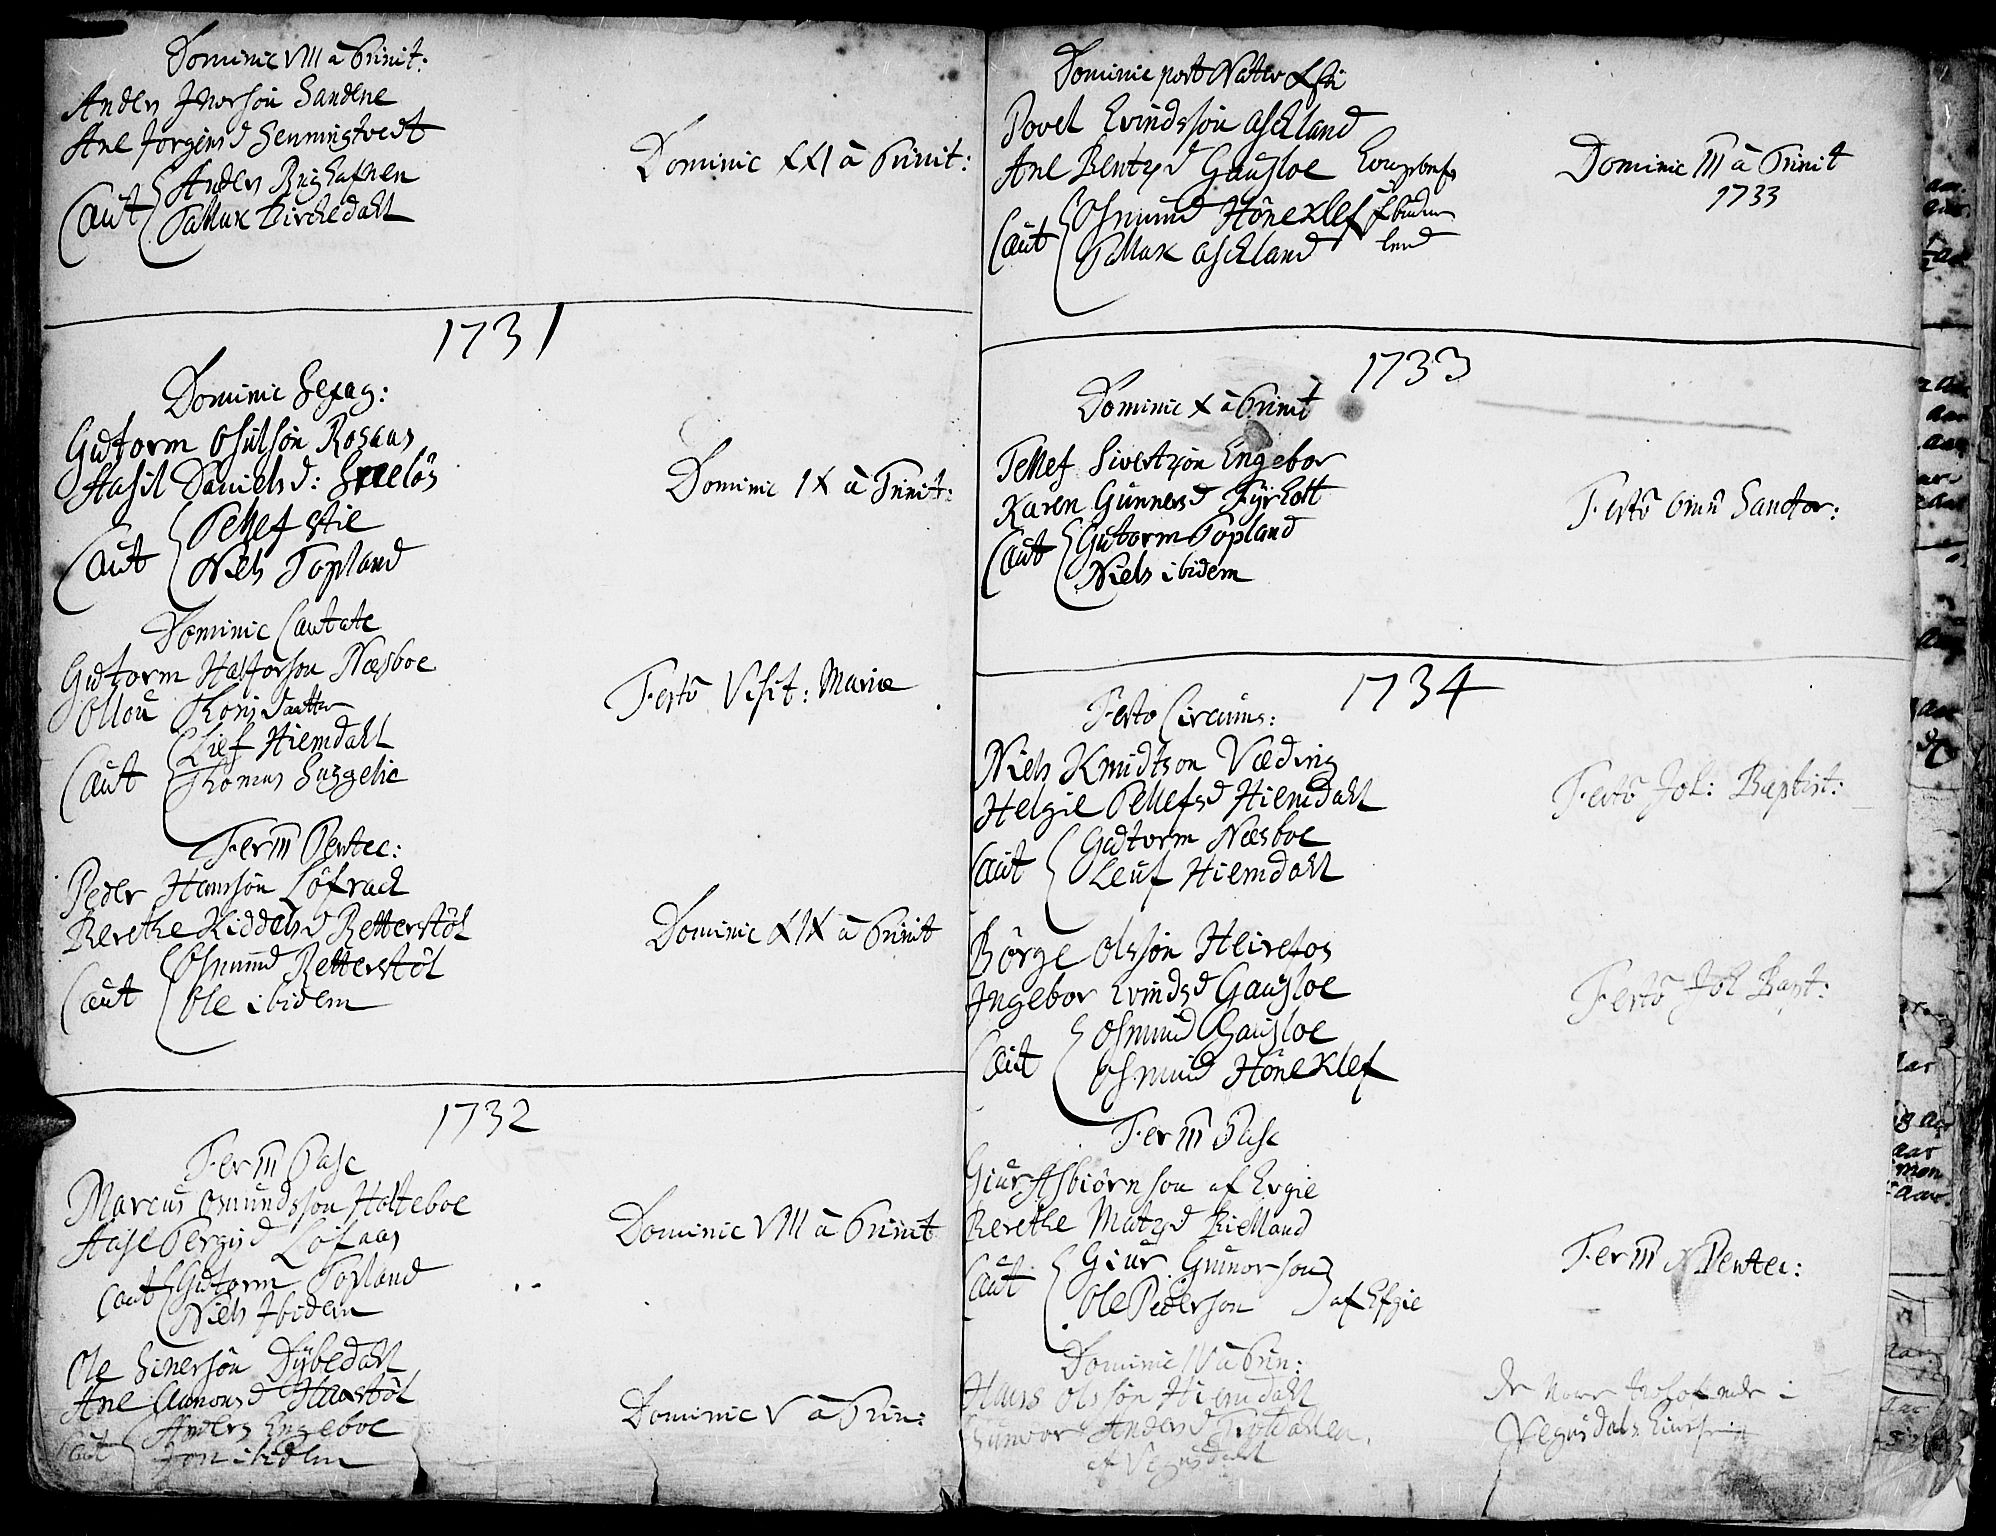 Dominic VIII à Trinit:
Anders Iversøn Sandene
Ane Jørgensd Senmingtvedt
Caut Anders Brighafnen
Tallak Birchedahl
Dominic XXI à Trinit:
1731
Dominic Sexag:
Gutorm Osulsøn Rosaas
Aasil Danielsd:
Caut Tellef Stie
Niels Topland
Dominic IX à Trinit:
Dominic Cantate
Gutorm Halforsøn Næsboe
Ollou Thorisdaatter
Caut Lief Hiemdahl
Thomas
Festo Visit: Mariæ
Fer III Pentec:
Peder Hansøn Løfrach
Berethe Kiddelsd Retterstøl
Caut Osmund Retterstøl
Ole ibidem
Dominic XIX à Trinit
1732
Fer III Pasc
Marcus Osmundssøn Holteboe
Aase Tergisd Løfaas
Caut Gutorm Topland
Niels Ibidem
Dominic VIII à Trinit
Ole Einersøn Dybedahl
Ane Aanonsd Haxstøl
Caut Anders Engeboe
Jon ibidem
Dominic V à Trin:
Dominic post Nativ Xsti
Povel Evindssøn Aschland
Ane Bentzd Gausloe
Caut Osmund Høneklef
Tallak Aschland
Dominic III à Trinit
1733
1733
Dominic X à Trinit
Tellef Sivertzøn Engeboe
Karen Gunnersd Fyrholt
Caut Gutorm Topland
Niels ibidem
Festo Omn Sanctor:
1734
Festo Circums:
Niels Knudtzon Væding
Helgie Tellefsd Hiemdahl
Caut Gutorm Næsboe
Leuf Hiemdahl
Festo Joh: Baptist:
Børge Olssøn Heirefos
Ingebor Evindsd Gausloe
Caut Osmund Gausloe
Osmund Høneklef
Festo Joh Bapt:
Fer III Pasc
Giur Asbiørnson af Evgie
Berethe Matzd Kielland
Caut Giur Gunorson
Ole Pederson af Efgie
Fer III Pentec:
Dominic IV à Trin:
Hans Olssøn Hiemdahl
Gunvor Andersd
af Vegusdahl
Vegusdals